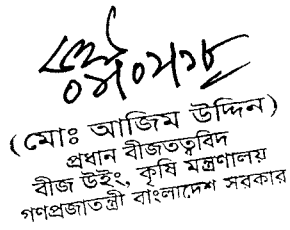 (মোঃ আজিম উদ্দিন)
প্রধান বীজতত্ববিদ
বীজ উইং, কৃষি মন্ত্রণালয়
গণপ্রজাতন্ত্রী বাংলাদেশ সরকার